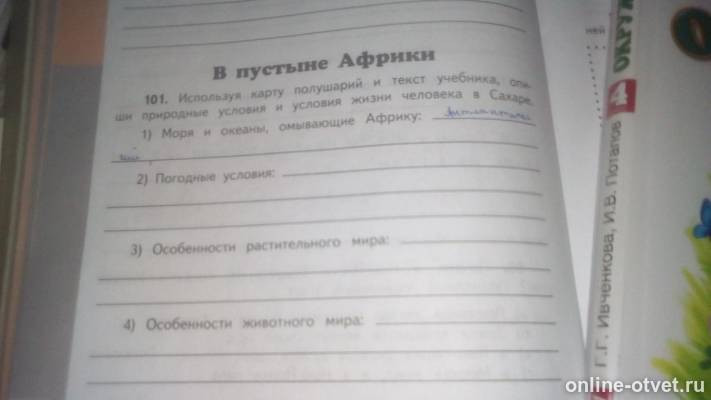 В пустыне Африки
101. Используя карту полушарий и текст учебника, опи-
ши природные условия и условия жизни человека в Сахаре.
1) Моря и океаны, омывающие Африку:
2) Погодные условия:
3) Особенности растительного мира:
4) Особенности животного мира:
ней
Г.Г. Ивченкова, И.В. Потапов
4 ОКРУЖ
О
online-otvet.ru